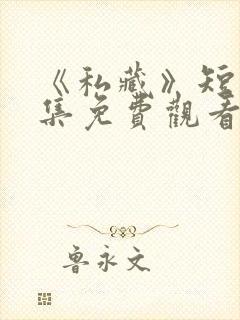 《私藏》短
集免費觀看
魯永文